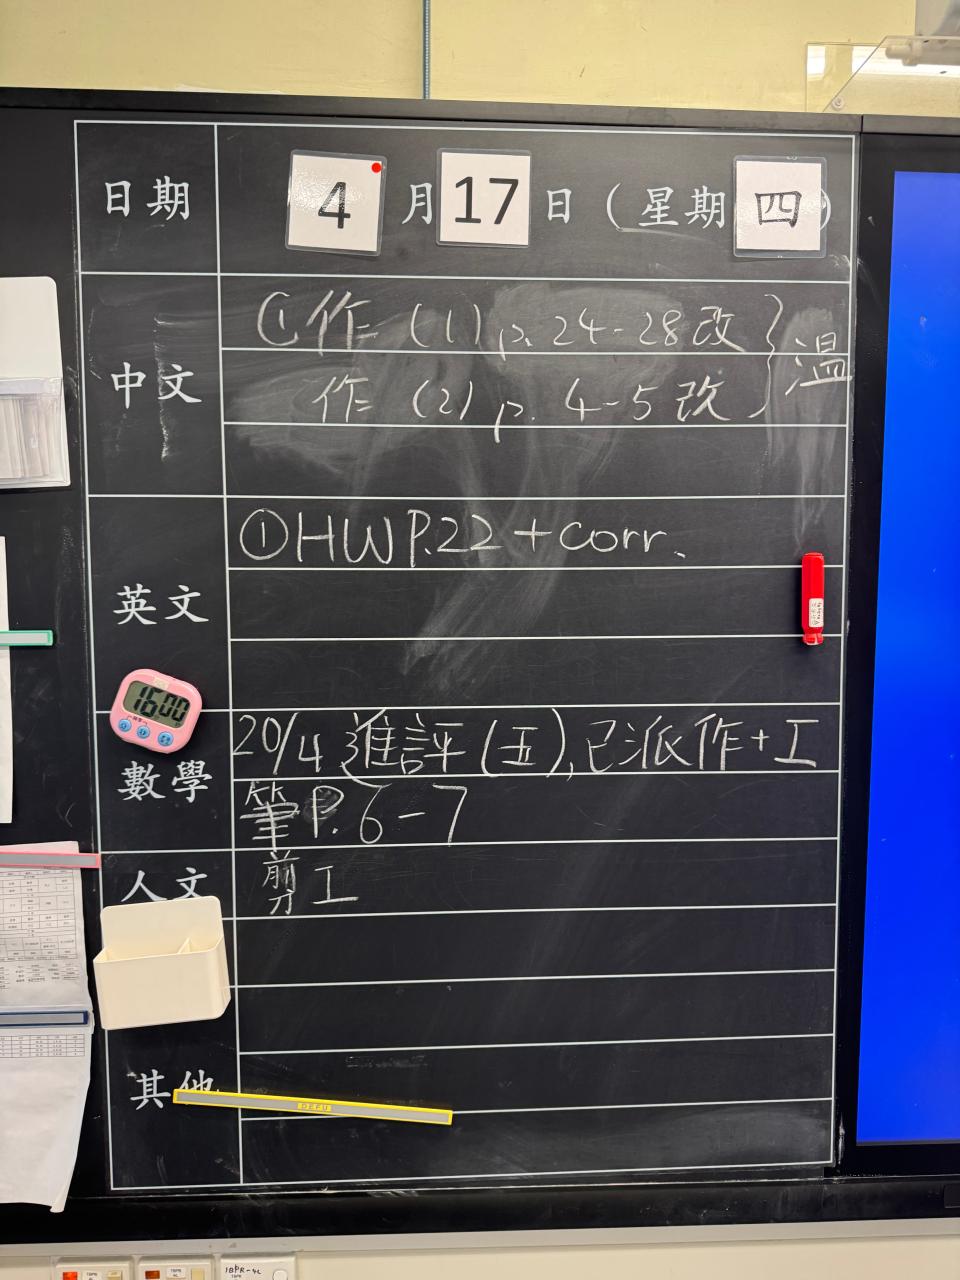 日期 4 月 17 日 (星期 四)
中文
① 作 (1) p. 24-28 改 } 溫
作 (2) p. 4-5 改
英文
① HW P.22 + corr.
16:00
數學
20/4 進評(五), 已派作+工
筆 P. 6-7
人文
剪工
其他
DEFU
1BPR-4L